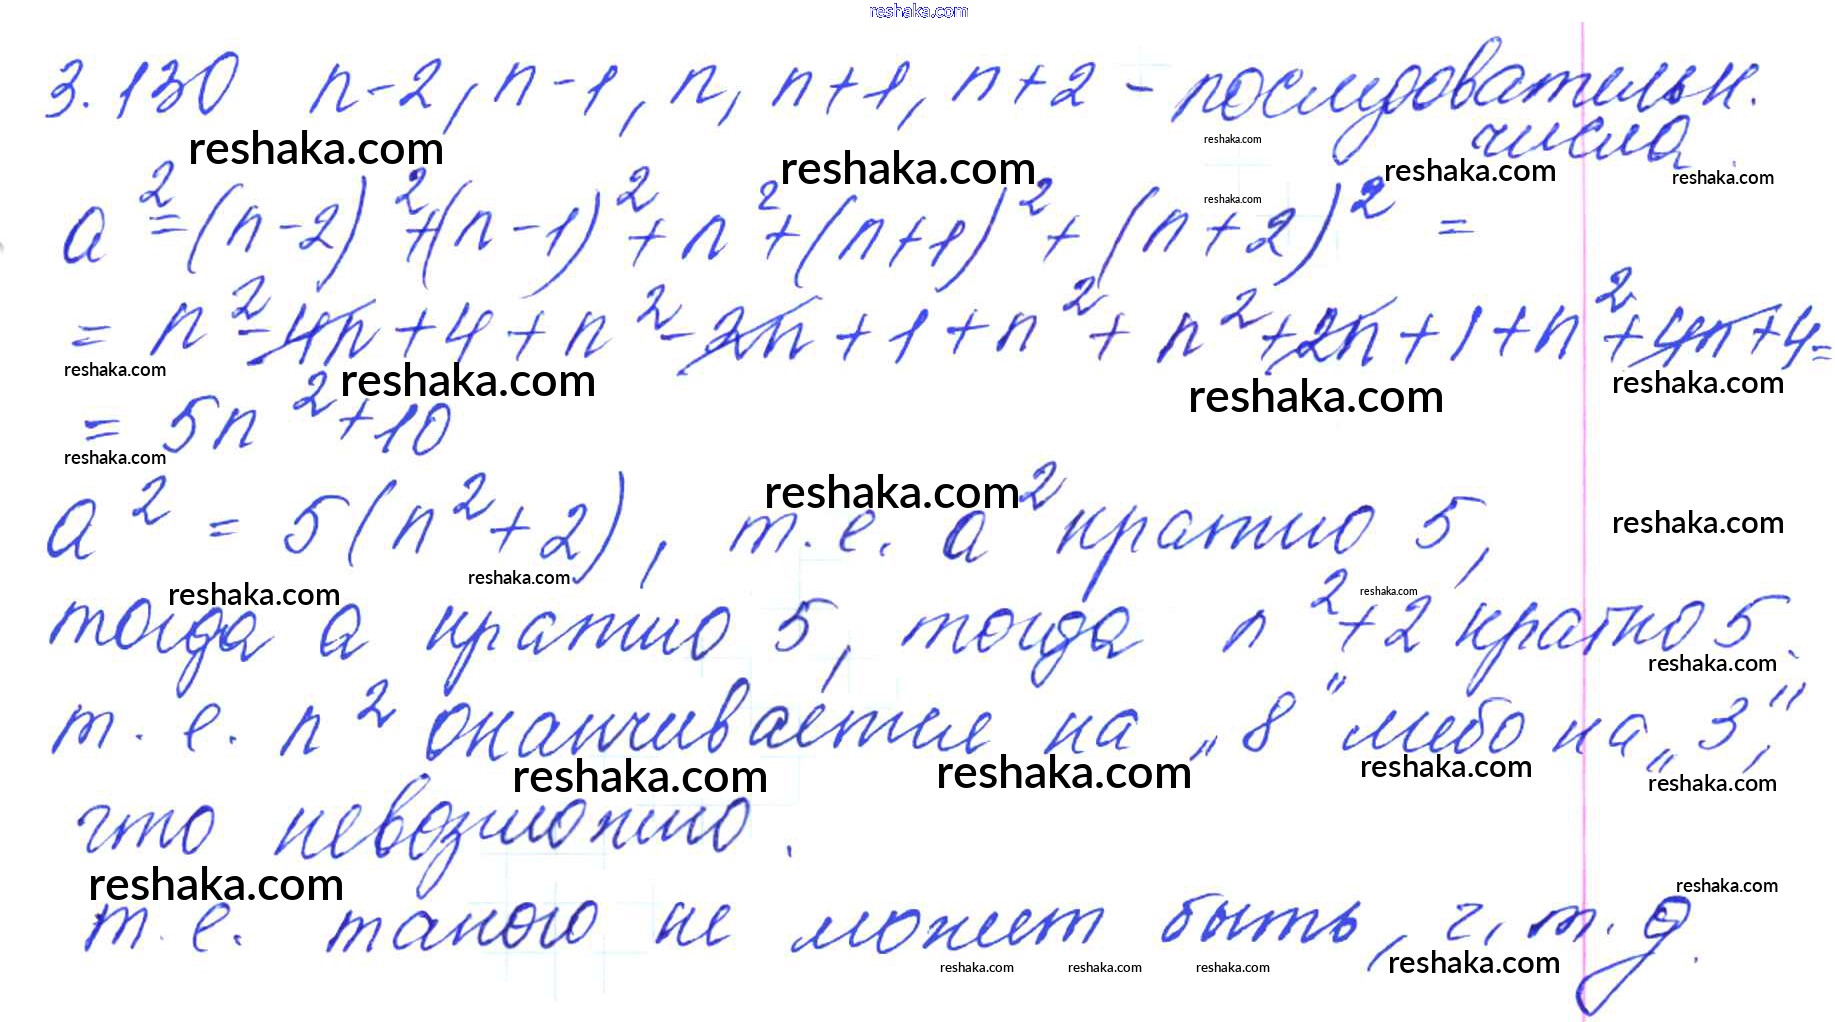 reshaka.com
3.130 n-2, n-1, n, n+1, n+2 - последовательн.
числа.
reshaka.com reshaka.com reshaka.com reshaka.com reshaka.com
a² = (n-2)² + (n-1)² + n² + (n+1)² + (n+2)² =
reshaka.com
= n² - 4n + 4 + n² - 2n + 1 + n² + n² + 2n + 1 + n² + 4n + 4 =
reshaka.com reshaka.com reshaka.com reshaka.com
= 5n² + 10
reshaka.com reshaka.com
a² = 5(n² + 2), т.е. a² кратно 5,
reshaka.com reshaka.com reshaka.com reshaka.com
тогда a кратно 5, тогда n² + 2 кратно 5.
reshaka.com
т.е. n² оканчивается на „8" либо на „3",
reshaka.com reshaka.com reshaka.com reshaka.com
что невозможно.
reshaka.com reshaka.com
т.е. такого не может быть, ч.т.д.
reshaka.com reshaka.com reshaka.com reshaka.com